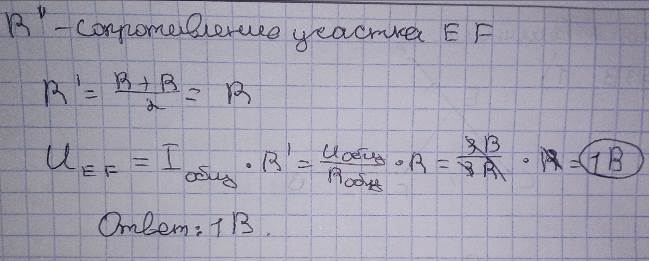 R" - сопротивление участка EF
R' = (R + R)/2 = R
U_EF = I_общ · R' = U_общ/R_общ · R = 3В/3R · R = 1В
Ответ: 1В.